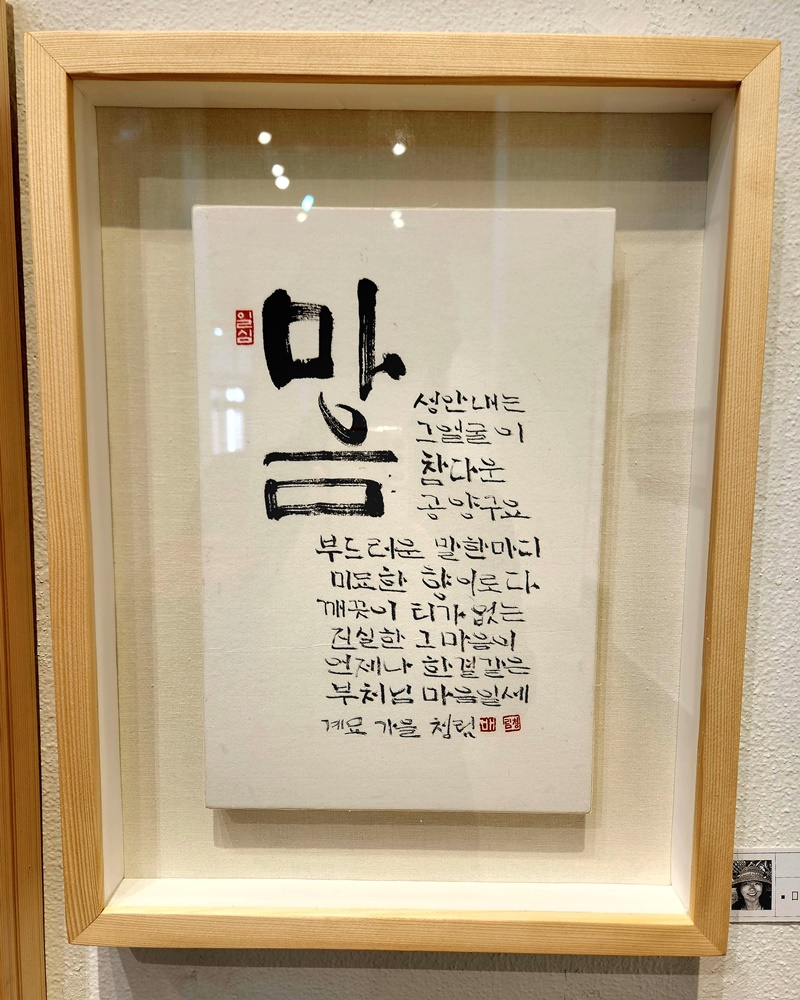 일심
마음
성안내는
그얼굴이
참다운
공양구요
부드러운 말한마디
미묘한 향이로다
깨끗이 티가없는
진실한 그마음이
언제나 한결같은
부처님 마음일세
계묘 가을 배